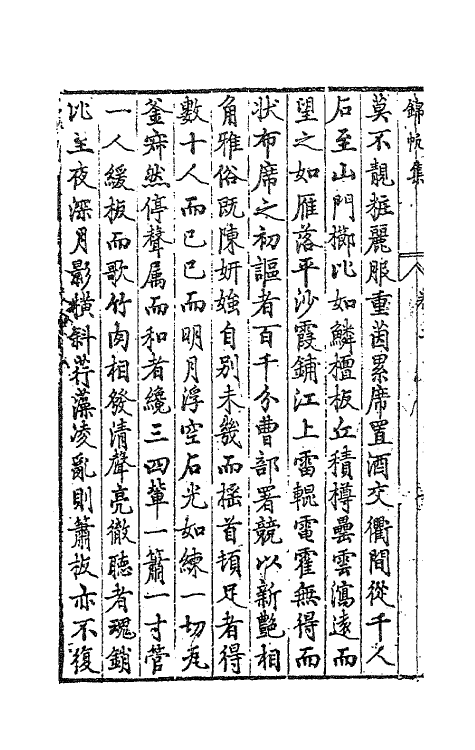 錦帆集
莫不靚粧麗服重茵累席置酒交衢間從千人
石至山門櫛比如鱗檀板丘積樽罍雲瀉遠而
望之如雁落平沙霞鋪江上雷輥電霍無得而
狀布席之初謳者百千分曹部署競以新艷相
角雅俗既陳妍媸自別未幾而搖首頓足者得
數十人而已已而明月浮空石光如練一切瓦
釜寂然停聲屬而和者纔三四輩一簫一寸管
一人緩板而歌竹肉相發清聲亮徹聽者魂銷
比至夜深月影橫斜荇藻凌亂則簫板亦不復